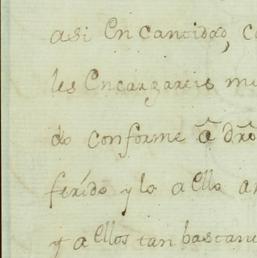 asi en cantidad, co
les encargareis me
do conforme â dro
ferido y lo a ello an
y a ellos tan bastant